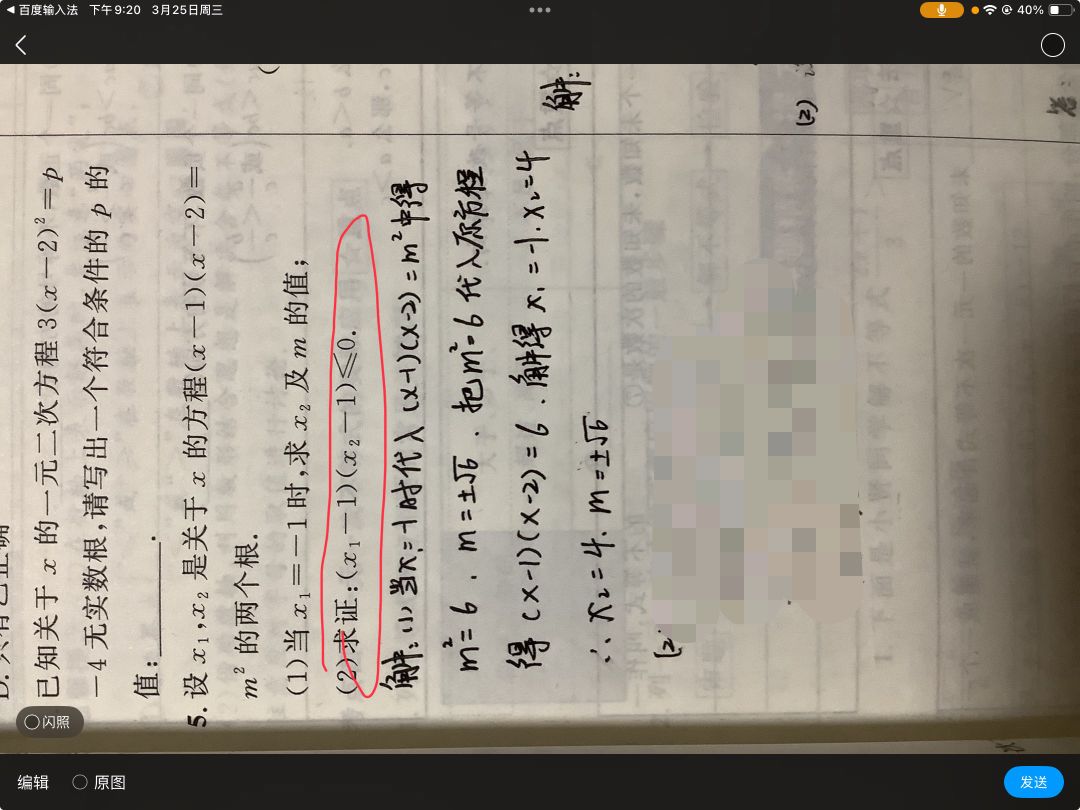 百度输入法 下午9:20 3月25日周三
40%
已知关于 x 的一元二次方程 3(x-2)²=p
-4 无实数根,请写出一个符合条件的 p 的
值:________.
5. 设 x₁,x₂ 是关于 x 的方程(x-1)(x-2)=
m² 的两个根.
(1)当 x₁=-1 时,求 x₂ 及 m 的值;
(2)求证:(x₁-1)(x₂-1)≤0.
解:(1)当x₁=-1时代入(x-1)(x-2)=m²中得
m²=6, m=±√6, 把m²=6代入原方程
得(x-1)(x-2)=6,解得x₁=-1,x₂=4
∴x₂=4, m=±√6
(2
解:
(2)
答:
闪照
编辑
原图
发送